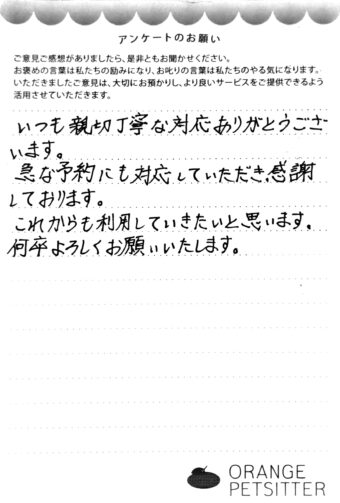 アンケートのお願い
ご意見ご感想がありましたら、是非ともお聞かせください。
お褒めの言葉は私たちの励みになり、お叱りの言葉は私たちのやる気になります。
いただきましたご意見は、大切にお預かりし、より良いサービスをご提供できるよう
活用させていただきます。
いつも親切丁寧な対応ありがとうござ
います。
急な予約にも対応していただき、感謝
しております。
これからも利用していきたいと思います。
何卒よろしくお願いいたします。
ORANGE
PETSITTER